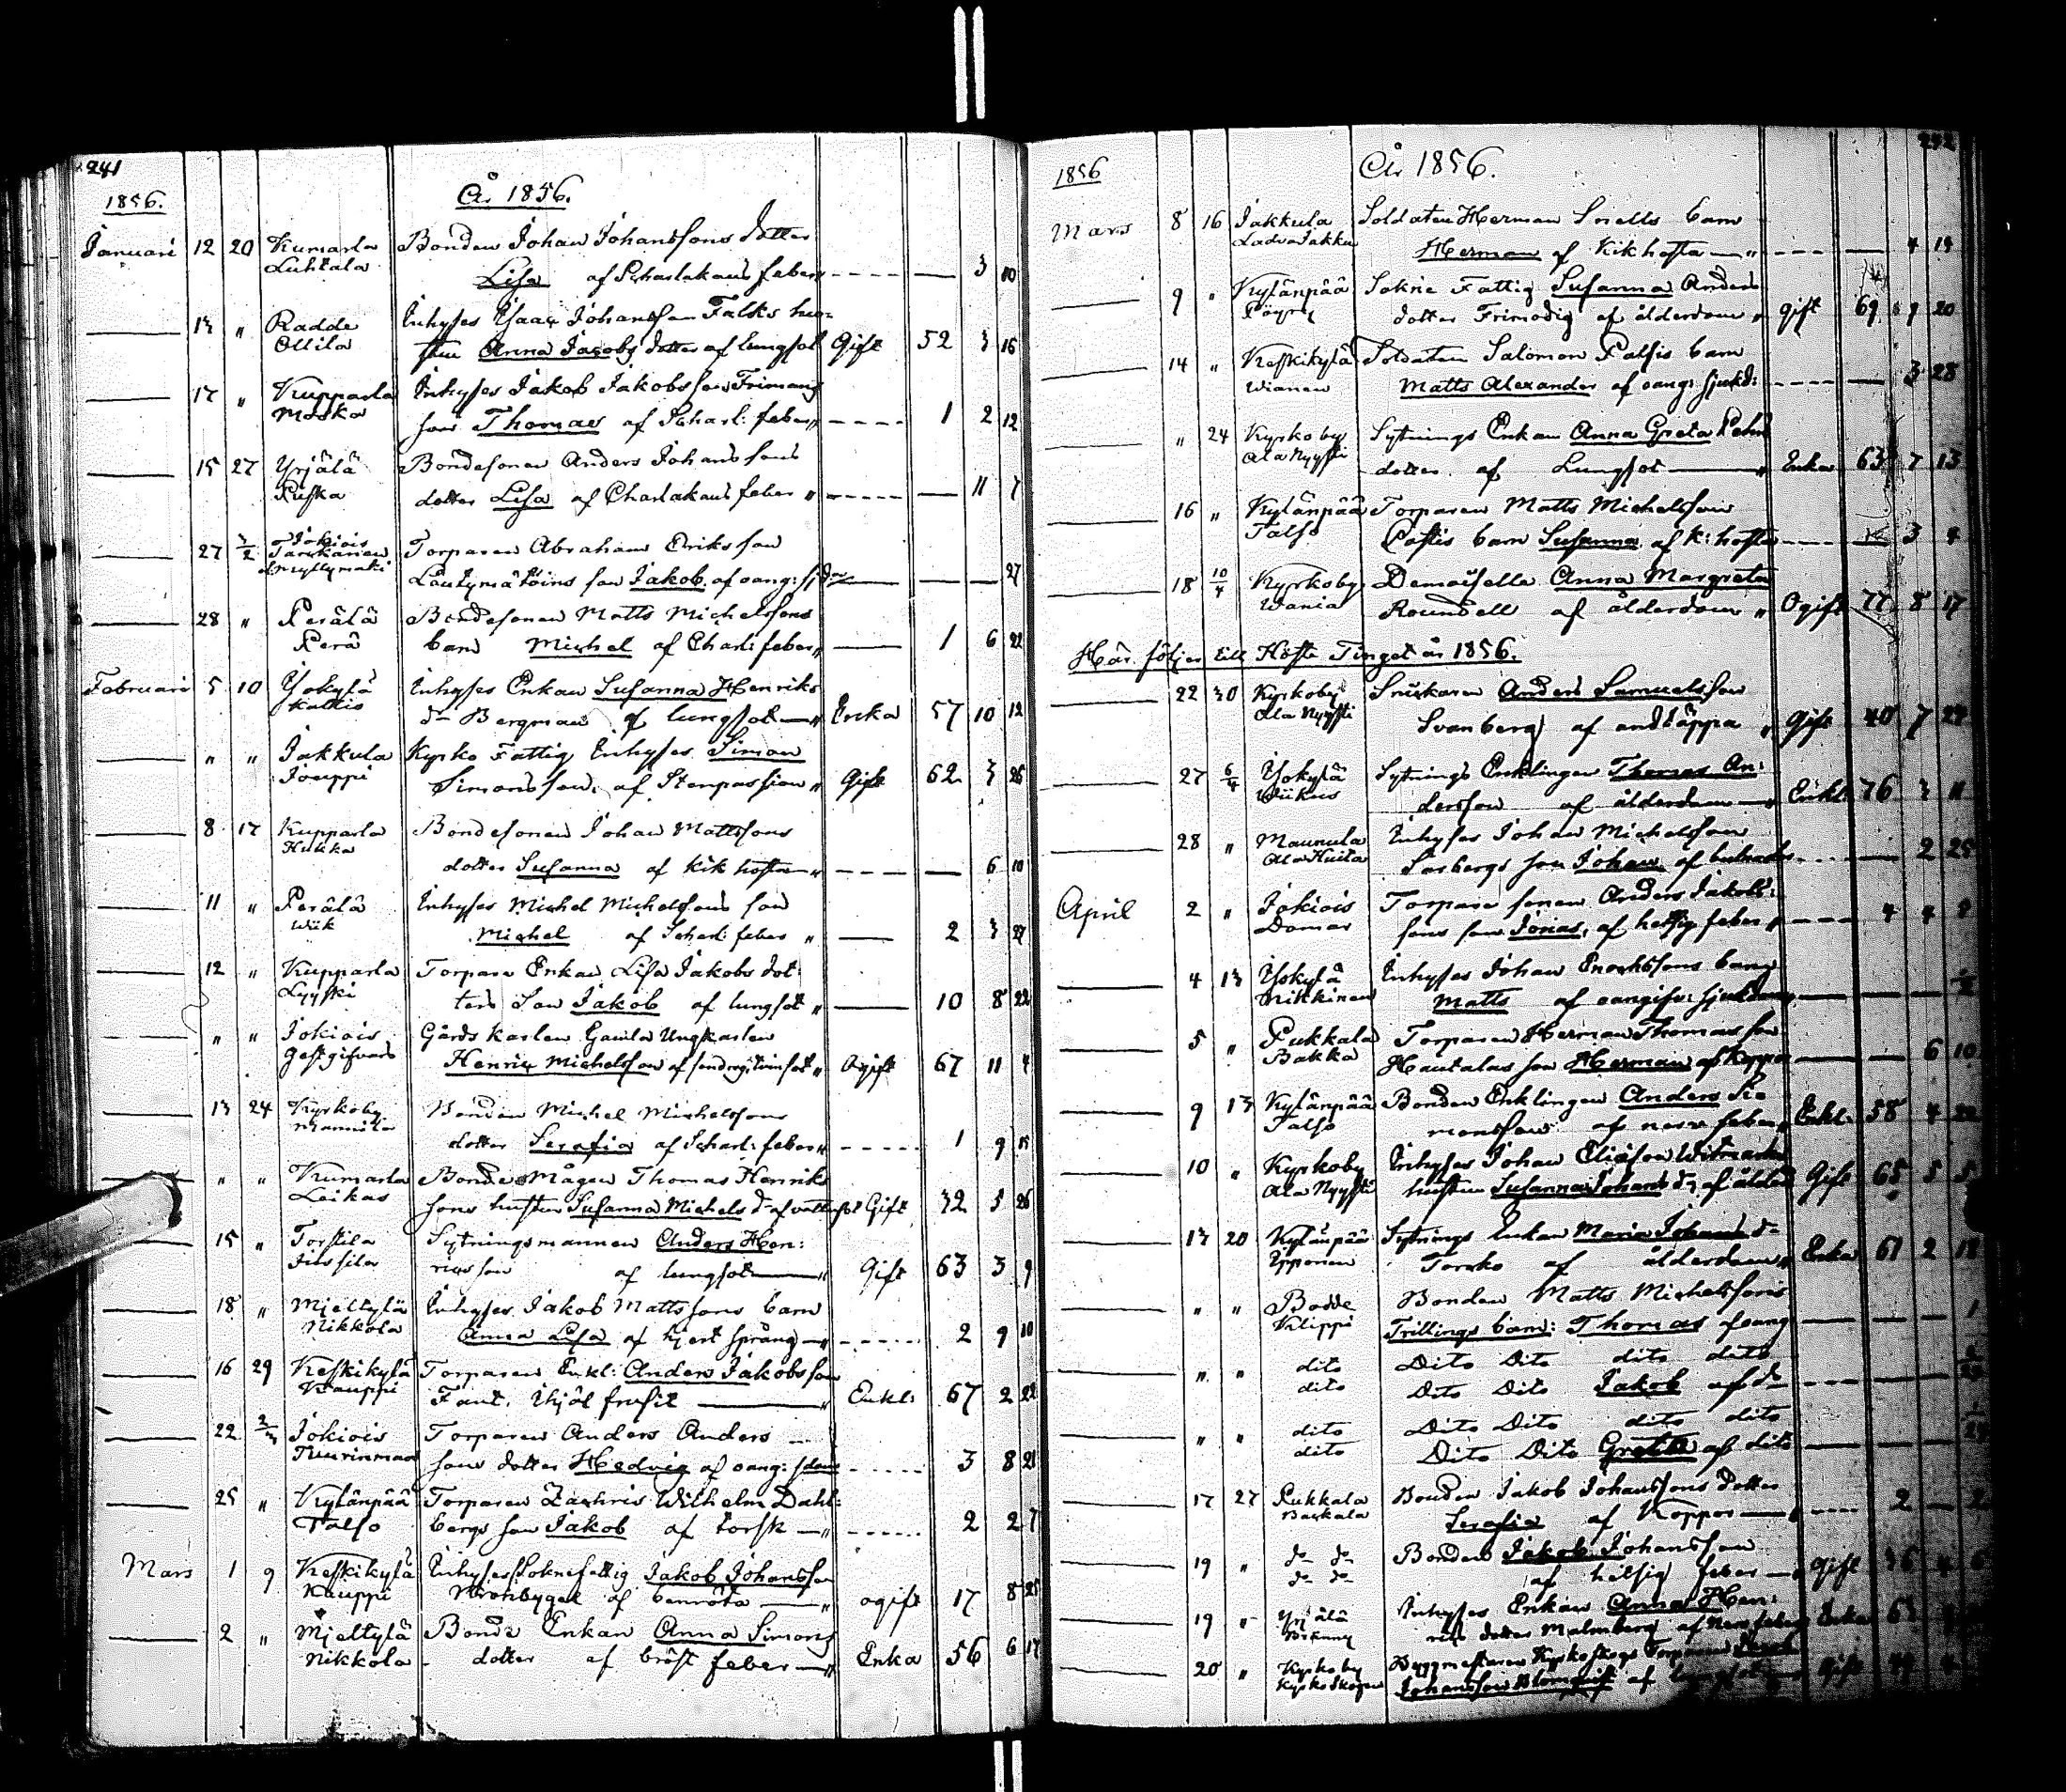 241
1856.
År 1856.
Januari 12 20 Kumarla Bonden Johan Johanssons dotter
Luhtala Lisa af Scharlakans feber " 3 10
13 " Radde Inhyses Isaac Johansson Falks hu-
Ollila stru Anna Jacobs dotter af lungsot Gift 52 3 16
17 " Kupparla Inhyses Jakob Jakobsson Frimans
Moska son Thomas af Scharl: feber " 1 2 12
15 27 Yrjälä Bondesonen Anders Johanssons
Puska dotter Lisa af Charlakans feber " 11 7
27 3/2 Jokiois Torparen Abraham Eriksson
Myllymäki son Jakob af oang: 27
28 " Perälä Bondesonen Matts Michelssons
Perä barn Michel af Charl: feber " 1 6 22
Februari 5 10 Yökylä Inhyses Enkan Susanna Henriks
Kattis d:r Bergman af lungsot " Enka 57 10 12
" " Jakkula Kyrko Fattig Inhyses Simon
Jouppi Simonsson af Stenpassion " Gift 62 3 26
8 17 Kupparla Bondesonen Johan Mattssons
Hukka dotter Susanna af kik hosta " 6 10
11 " Perälä Inhyses Michel Michelssons son
Wiik Michel af Scharl: feber " 2 3 27
12 " Kupparla Torpare Enkan Lisa Jakobs dot-
Lyyski ters Son Jakob af lungsot " 10 8 22
" " Jokiois Gårds karlen Gamla Ungkarlen
Gestgifvars Henric Michelsson af Ogift 67 11 4
13 24 Kyrkoby Bonden Michel Michelssons
Mannila dotter Serafia af Scharl: feber " 1 9 15
" " Kumarla Bonde Mågen Thomas Henriks
Laikas sons hustru Susanna Michels d:r af Gift 32 5 26
15 " Torstila Sytningsmannen Anders Hen:
Jussila ricsson af lungsot " Gift 63 3 9
18 " Mieltylä Inhyses Jakob Mattssons barn
Nikkola Anna Lisa af hjert språng " 2 9 10
16 29 Keskikylä Torparen Enkl: Anders Jakobsson
Kauppi Fant. Ihjäl frusit " Enkl: 67 2 22
22 2/3 Jokiois Torparen Anders Anders
Tuurinmaa sons dotter Hedvig af oang: 3 8 21
25 " Kylänpää Torparen Zachris Wilhelm Dahl:
Talso bergs son Jakob af torsk " 2 2 7
Mars 1 9 Keskikylä Inhyses Soknefattig Jakob Johansson
Kauppi af benröta " ogift 17 8 25
2 " Mieltylä Bonde Enkan Anna Simons
Nikkola dotter af bröst feber " Enka 56 6 17
242
1856
År 1856.
Mars 8 16 Jakkula Soldaten Herman Snells barn
Herman af Kikhosta " 4 14
9 " Kylänpää Sokne Fattig Susanna Anders
Pöyry dotter Frimodig af ålderdom " gift 69 9 20
14 " Keskikylä Soldaten Salomon Palsis barn
Wianen Matts Alexander af oang: sjukd: 3 28
" 24 Kyrkoby Sytnings Enkan Anna Greta
Ala Nyysti dotter af Lungsot " Enka 63 7 13
16 " Kylänpää Torparen Matts Michelsson
Talso barn Susanna af k: hosta 3 4
18 10/4 Kyrkoby Demoiselle Anna Margreta
Wania Roundell af ålderdom " Ogift 77 8 17
Här följer till Höste Tinget år 1856.
22 30 Kyrkoby Snickaren Anders Samuelsson
Ala Nyysti Svanberg af andtäppa " Gift 40 7 24
27 6/4 Yökylä Sytnings Enklingen Thomas An:
Wiikus dersson af ålderdom " Enkl: 76 3 11
28 " Maunula Inhyses Johan Michelsson
Ala Huita son Johan af 2 25
April 2 " Jokiois Torpare sonen Anders Jakobs:
Domar sons son Jonas, af hetsig feber " 4 4 8
4 13 Yökylä Inhyses Johan Enochssons barn
Mikkinen Matts af oangifv: sjukdom
5 " Pukkala Torparen Herman Thomasson
Bakka Hautalas son Herman af Koppor 6 10
9 13 Kylänpää Bonden Enklingen Anders Si-
Talso monsson af nerv feber " Enkl: 58 4 22
10 " Kyrkoby Inhyses Johan Eliasson
Ala Nyysti hustru Susanna Johans d:r af ålder Gift 65 5 5
13 20 Kylänpää Sytnings Enkan Maria Johans d:r
Ypponen Torsko af ålderdom " Enka 61 2 18
" " Bodde Bonden Matts Michelssons
Klippi Trillings barn: Thomas af oang 1
" " dito Dito Dito dito dito
dito Dito Dito Jakob af d:o
" " dito Dito Dito dito dito
dito Dito Dito Greta af dito
17 27 Pukkala Bonden Jakob Johanssons dotter
Backala Serafia af Koppor " 2 — 2
19 " d:o d:o Bonden Jakob Johansson
d:o d:o af hetsig feber " Gift 36 4 6
19 " Yrjälä Inhyses Enkan Anna Hen:
rics dotter Malmberg af Nerv feber Enka
20 " Kyrkoby Byggmestaren Kyrkoskogs Torparen Jacob
Kyrkoskogen Johansson Blomqvist af lungsot Gift